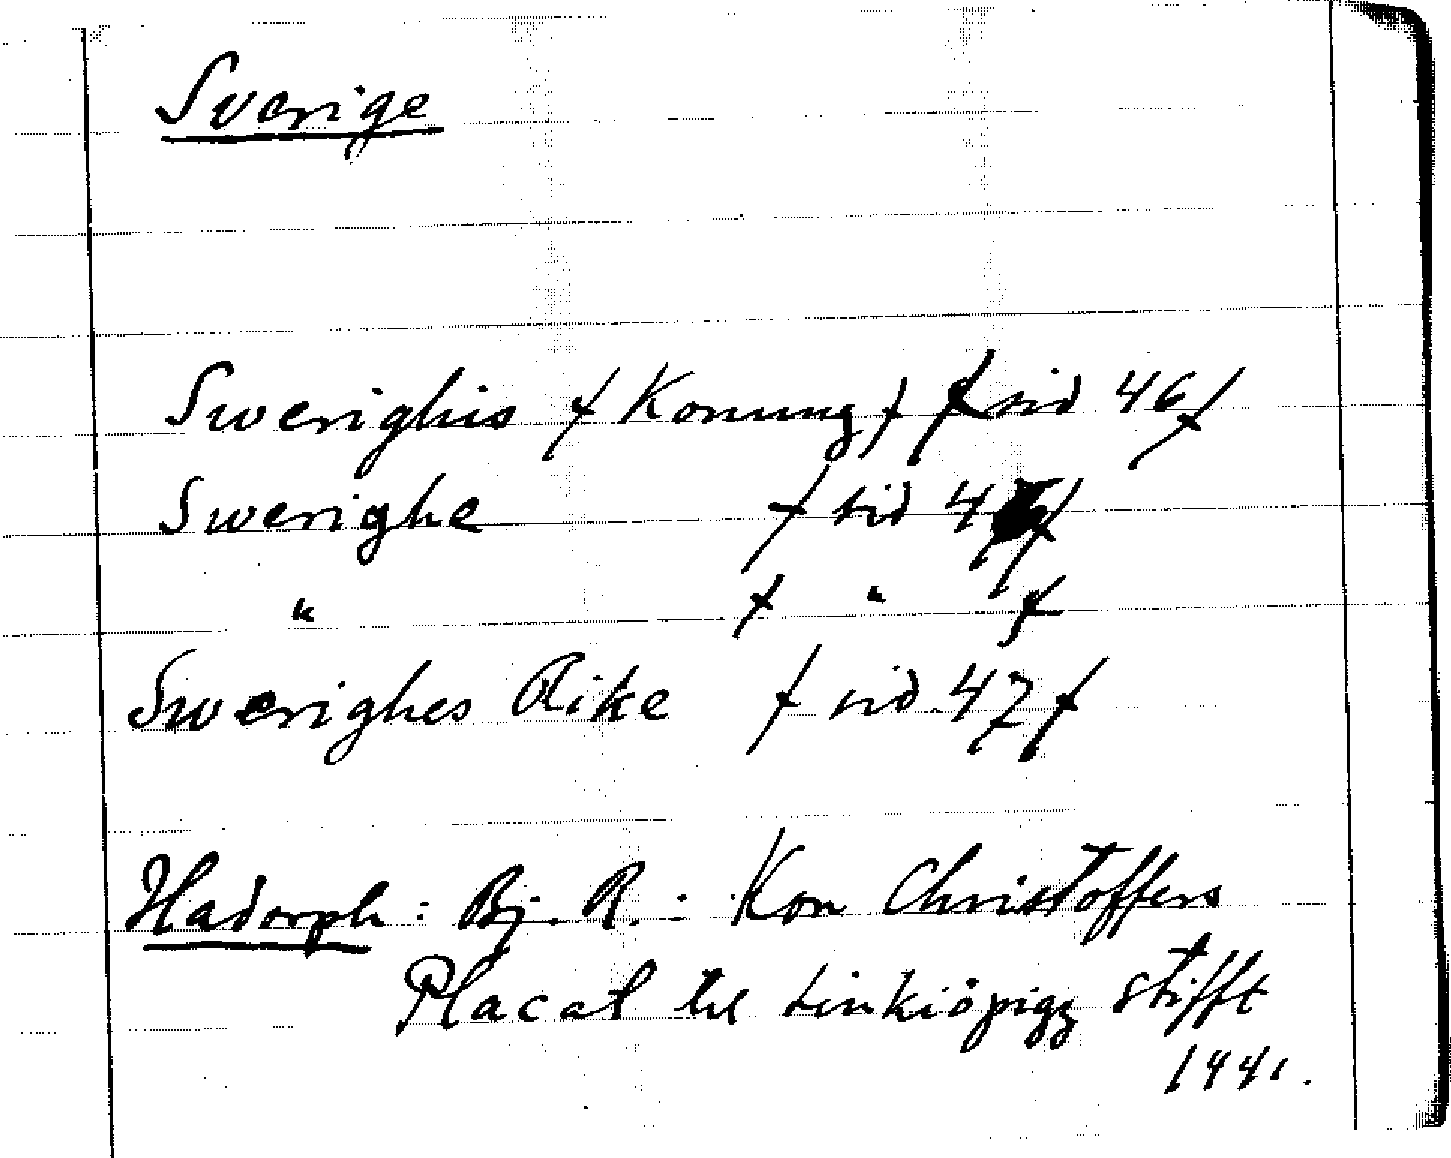 Sverige
Swerighis (Konung) (sid 46)
Swerighe (sid 47)
" ( " )
Swerighes Rike (sid 47)
Hadorph: Bj. R. : Kon Christoffers
Placat til Linkiöpigz stifft
1441.